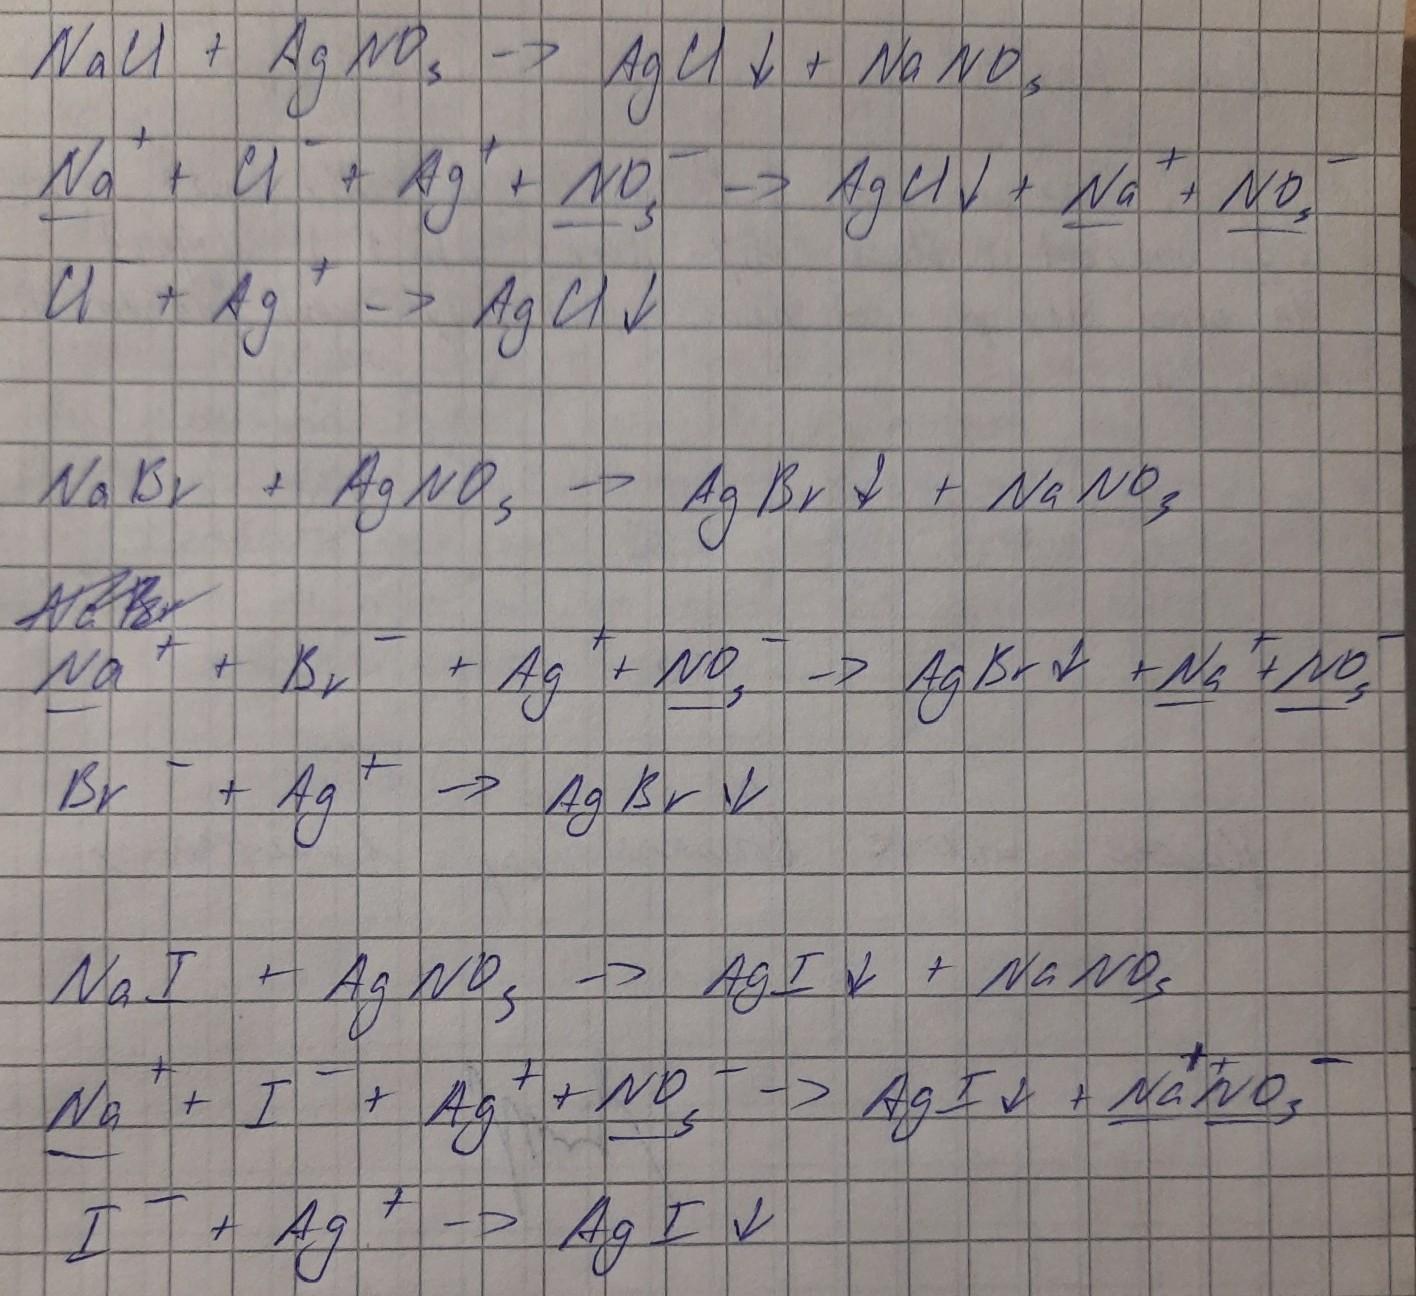 NaCl + AgNO₃ -> AgCl↓ + NaNO₃
Na⁺ + Cl⁻ + Ag⁺ + NO₃⁻ -> AgCl↓ + Na⁺ + NO₃⁻
Cl⁻ + Ag⁺ -> AgCl↓
NaBr + AgNO₃ -> AgBr↓ + NaNO₃
Na⁺ + Br⁻ + Ag⁺ + NO₃⁻ -> AgBr↓ + Na⁺ + NO₃⁻
Br⁻ + Ag⁺ -> AgBr↓
NaI + AgNO₃ -> AgI↓ + NaNO₃
Na⁺ + I⁻ + Ag⁺ + NO₃⁻ -> AgI↓ + Na⁺ + NO₃⁻
I⁻ + Ag⁺ -> AgI↓